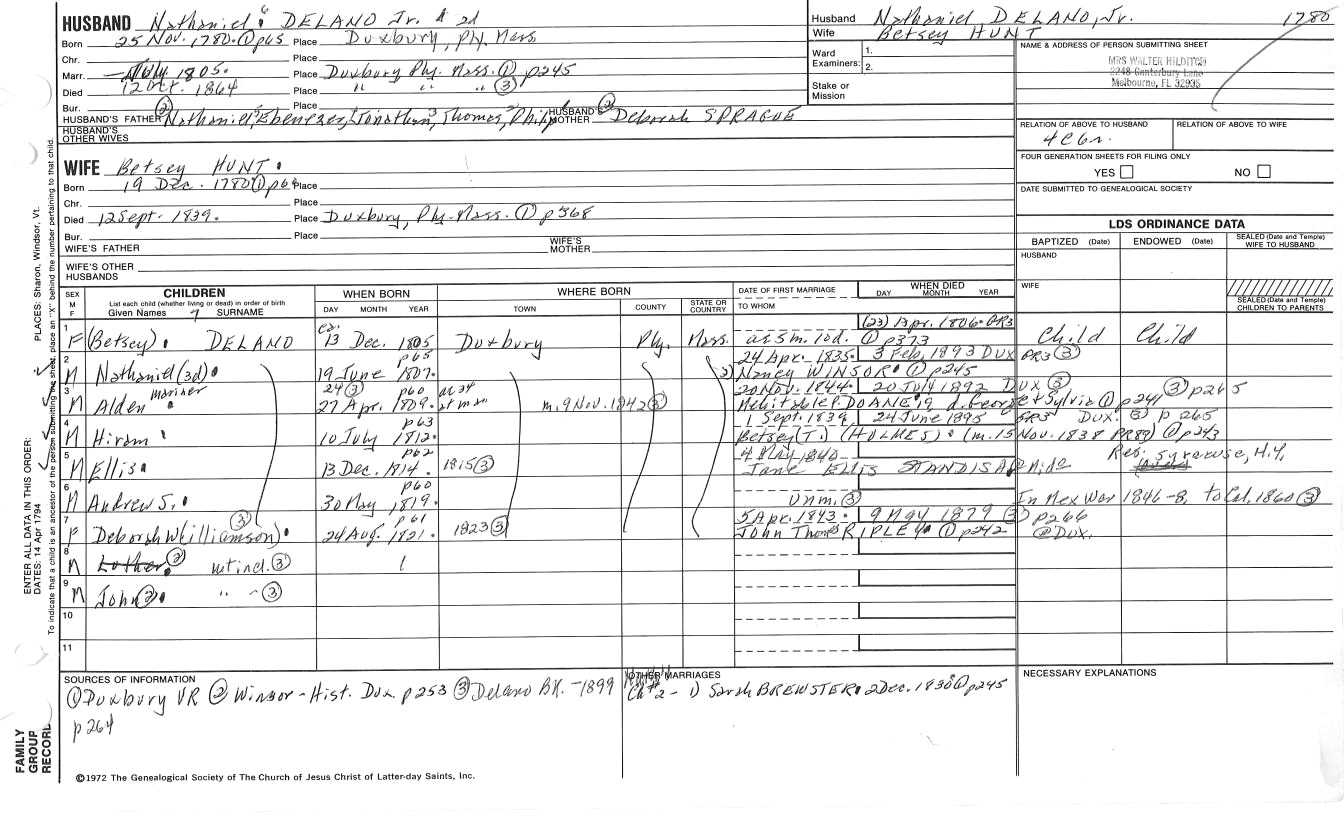 HUSBAND Nathaniel 6 DELANO Jr. & 2d
Born 25 Nov. 1780. ① p65 Place Duxbury, Ply. Mass
Chr. Place
Marr. — July 1805. Place Duxbury Ply. Mass. ① p245
Died 12 Oct. 1864 Place " " " ③
Bur. Place
HUSBAND'S FATHER ② Nathaniel, Ebenezer, Jonathan, Thomas, Philip HUSBAND'S MOTHER ② Deborah SPRAGUE
HUSBAND'S OTHER WIVES
Husband Nathaniel DELANO, Jr. 1780
Wife Betsey HUNT
Ward Examiners: 1.
2.
Stake or Mission
NAME & ADDRESS OF PERSON SUBMITTING SHEET
MRS WALTER HILDITCH
2248 Canterbury Lane
Melbourne, FL 32935
RELATION OF ABOVE TO HUSBAND RELATION OF ABOVE TO WIFE
4C6r.
FOUR GENERATION SHEETS FOR FILING ONLY
YES NO
DATE SUBMITTED TO GENEALOGICAL SOCIETY
WIFE Betsey HUNT.
Born 19 Dec. 1780 ① p64 Place
Chr. Place
Died 12 Sept. 1839. Place Duxbury, Ply. Mass. ① p368
Bur. Place
WIFE'S FATHER WIFE'S MOTHER
WIFE'S OTHER HUSBANDS
LDS ORDINANCE DATA
BAPTIZED (Date) ENDOWED (Date) SEALED (Date and Temple) WIFE TO HUSBAND
HUSBAND
WIFE
SEALED (Date and Temple) CHILDREN TO PARENTS
SEX M F
CHILDREN
List each child (whether living or dead) in order of birth
Given Names 7 SURNAME
WHEN BORN
DAY MONTH YEAR
WHERE BORN
TOWN COUNTY STATE OR COUNTRY
DATE OF FIRST MARRIAGE
TO WHOM
WHEN DIED
DAY MONTH YEAR
1 F (Betsey). DELANO ca. 13 Dec. 1805 Duxbury Ply. Mass. (23) 13 Apr. 1806. GR3 Child Child
as 5m. 10d. ① p373
2 M Nathaniel (3d). p65 19 June 1807. 24 Apr. 1835. 3 Feb. 1893 DUX GR3 ③
2) Nancy WINSOR. ① p245
3 M Alden mariner 24 ③ p60 27 Apr. 1809. m. 9 Nov. 1842 ③ 20 Nov. 1844. 20 July 1892 DUX ③ ③ p265
Mehitable P. DOANE, 19, d. George & Sylvia ① p241
4 M Hiram p63 10 July 1812. 1 Sept. 1839 24 June 1895 GR3 Dux. ③ p265
Betsey (T.) (HOLMES). (m. 15 Nov. 1838 PR89) ① p243
5 M Ellis. p62 13 Dec. 1814. 1815 ③ 4 May 1840 Res. Syracuse, N.Y.
Jane ELLIS STANDISH
6 M Andrew S.. p60 30 May 1819. unm. ③ In Mex War 1846-8, to Cal. 1860 ③
7 F Deborah W(illiamson). ③ p61 24 Aug. 1821. 1823 ③ 5 Apr. 1843. 9 May 1879 ③ p266
John Thomas RIPLEY. ① p242 @ DUX.
8 M Luther. ② nt ind. ③
9 M John ②. " " ③
10
11
SOURCES OF INFORMATION
① Duxbury VR ② Winsor - Hist. Dux p253 ③ Delano BK. - 1899
p264
OTHER MARRIAGES
Ch# 2 - 1) Sarah BREWSTER. 2 Dec. 1830 ① p245
NECESSARY EXPLANATIONS
©1972 The Genealogical Society of The Church of Jesus Christ of Latter-day Saints, Inc.
FAMILY GROUP RECORD
ENTER ALL DATA IN THIS ORDER:
DATES: 14 Apr 1794 PLACES: Sharon, Windsor, Vt.
To indicate that a child is an ancestor of the person submitting the sheet, place an "X" behind the number pertaining to that child.